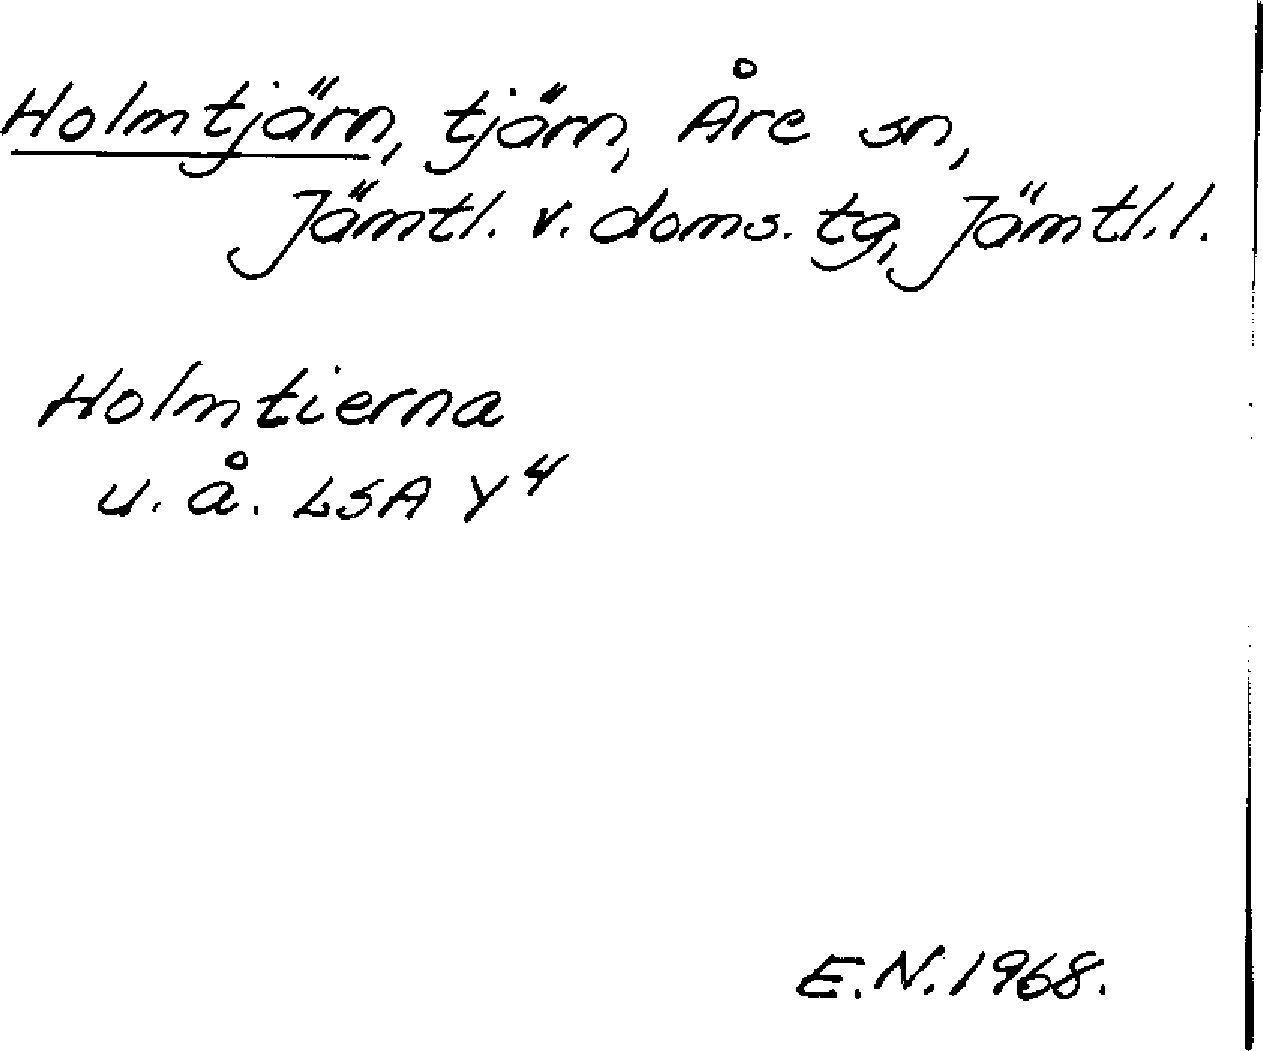 Holmtjärn, tjärn, Åre sn,
Jämtl. v. doms. tg, Jämtl. l.
Holmtierna
u. å. LSA Y4
E.N. 1968.